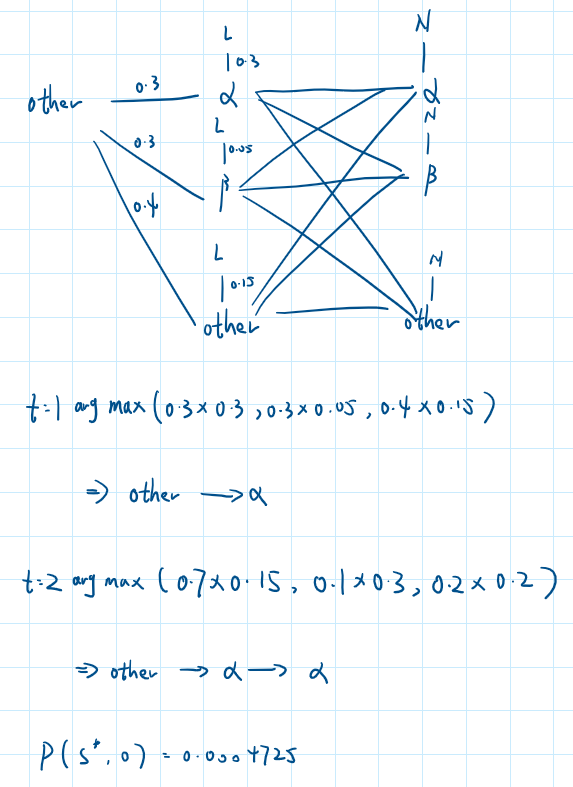 L N
| 0.3 |
other 0.3 α α
L N
0.3 | 0.05 |
β β
0.4
L N
| 0.15 |
other other
t=1 arg max (0.3 × 0.3 , 0.3 × 0.05 , 0.4 × 0.15)
⇒ other → α
t=2 arg max (0.7 × 0.15 , 0.1 × 0.3 , 0.2 × 0.2)
⇒ other → α → α
P(s*, o) = 0.0004725